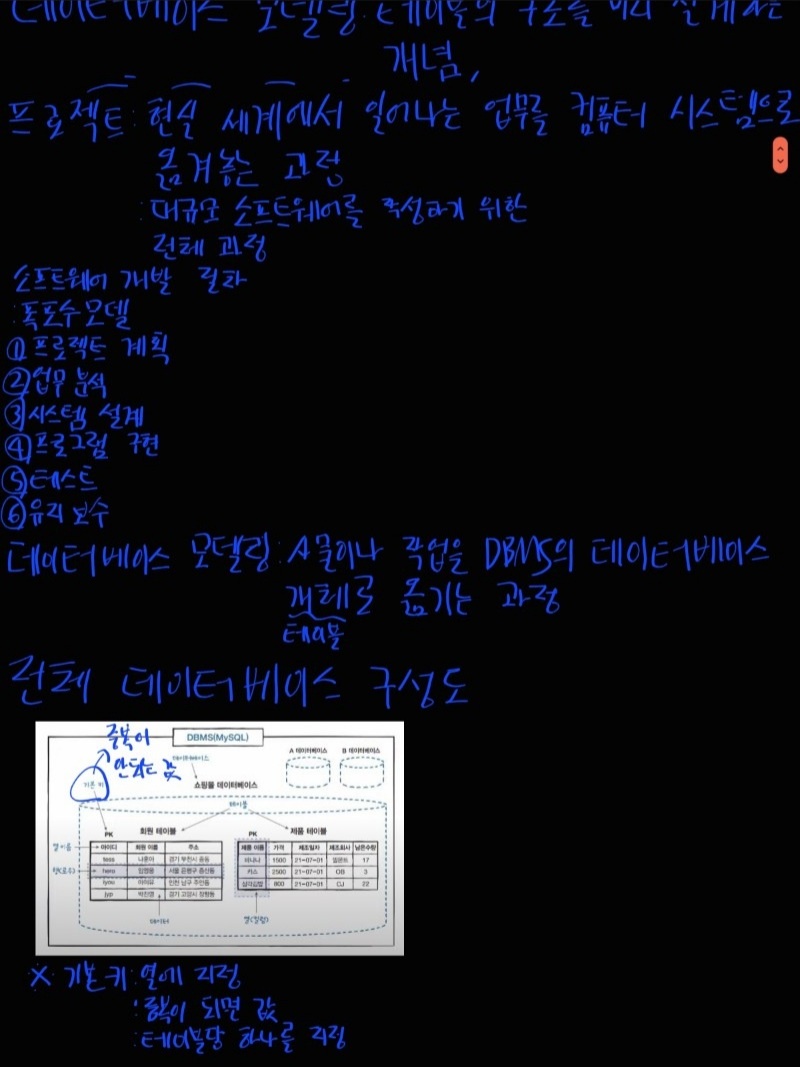 데이터베이스 모델링: 테이블의 구조를 미리 설계하는
개념,
프로젝트: 현실 세계에서 일어나는 업무를 컴퓨터 시스템으로
옮겨놓는 과정
: 대규모 소프트웨어를 작성하기 위한
전체 과정
소프트웨어 개발 절차
: 폭포수 모델
① 프로젝트 계획
② 업무 분석
③ 시스템 설계
④ 프로그램 구현
⑤ 테스트
⑥ 유지 보수
데이터베이스 모델링: 사물이나 작업을 DBMS의 데이터베이스
개체로 옮기는 과정
테이블
전체 데이터베이스 구성도
중복이
안되는 값
DBMS(MySQL)
데이터베이스
A 데이터베이스 B 데이터베이스
기본 키
쇼핑몰 데이터베이스
테이블
PK 회원 테이블 PK 제품 테이블
열 이름
아이디 회원 이름 주소
제품 이름 가격 제조일자 제조회사 남은수량
tess 나훈아 경기 부천시 중동
바나나 1500 21-07-01 델몬트 17
행(로우)
hero 임영웅 서울 은평구 증산동
카스 2500 21-07-01 OB 3
iyou 아이유 인천 남구 주안동
삼각김밥 800 21-07-01 CJ 22
jyp 박진영 경기 고양시 장항동
데이터
열(컬럼)
X 기본 키: 열에 지정
: 중복이 되면 값
: 테이블당 하나를 지정